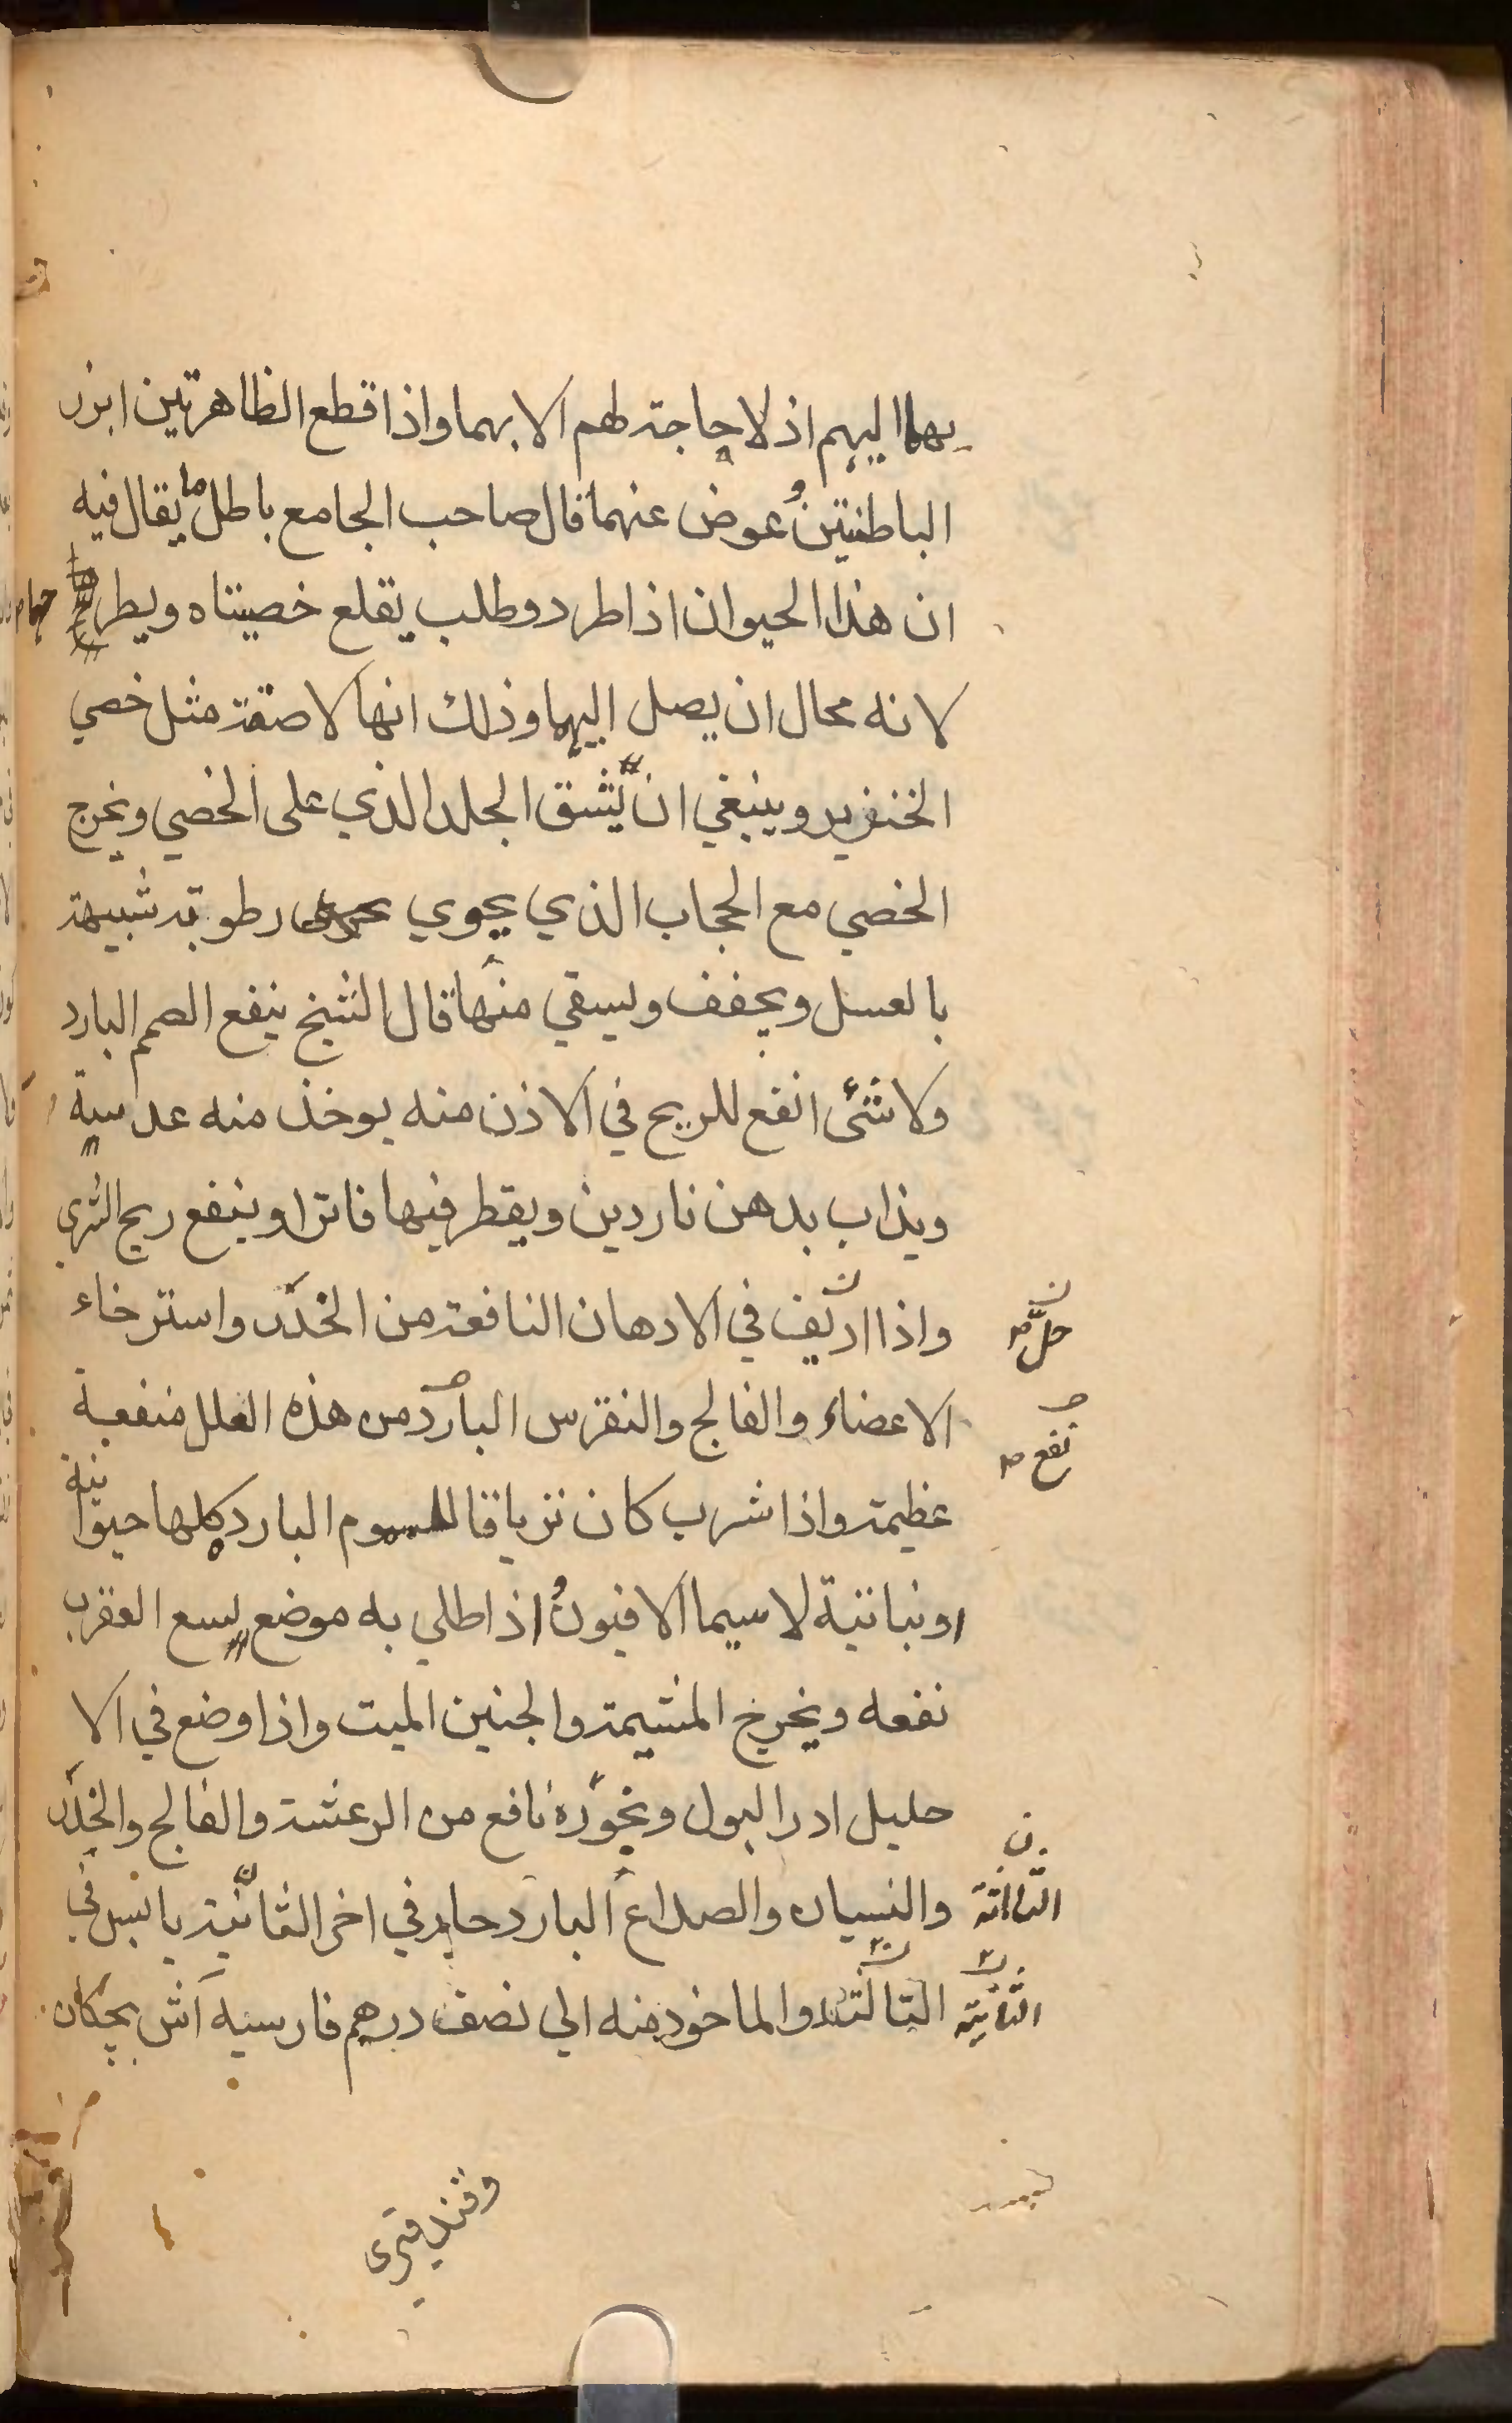 بهما اليهم اذ لا حاجة لهم الا بهما واذا قطع الظاهرتين ابرز
الباطنتين عوض عنهما قال صاحب الجامع باطل ما يقال فيه
ان هذا الحيوان اذا طرد وطلب يقلع خصيتاه ويطر حهما
لانه محال ان يصل اليهما وذلك انها لاصقة مثل خصي
الخنزير وينبغي ان يشق الجلد الذي على الخصي ونخرج
الخصي مع الحجاب الذي يحوي رطوبة شبيهة
بالعسل ويجفف ويسقي منها قال الشيخ ينفع الصمم البارد
ولا شئ انفع للريح في الاذن منه يوخذ منه عدسية
ويذاب بدهن ناردين ويقطر فيها فاترا وينفع ريح الثرى
واذا اديف في الادهان النافعة من الخدر واسترخاء
حل
الاعضاء والفالج والنقرس البارد من هذه العلل منفعة
نفع
عظيمة واذا شرب كان ترياقا للسموم البارد كلها حيوانية
او نباتية لا سيما الافيون اذا طلي به موضع لسع العقرب
نفعه ويخرج المشيمة والجنين الميت واذا وضع في الا
حليل ادر البول وبخوره نافع من الرعشة والفالج والخدر
والنسيان والصداع البارد حار في اخر الثانية يابس في
الثالثة
الثالثة والماخوذ منه الى نصف درهم فارسيه آش بچكان
الثانية